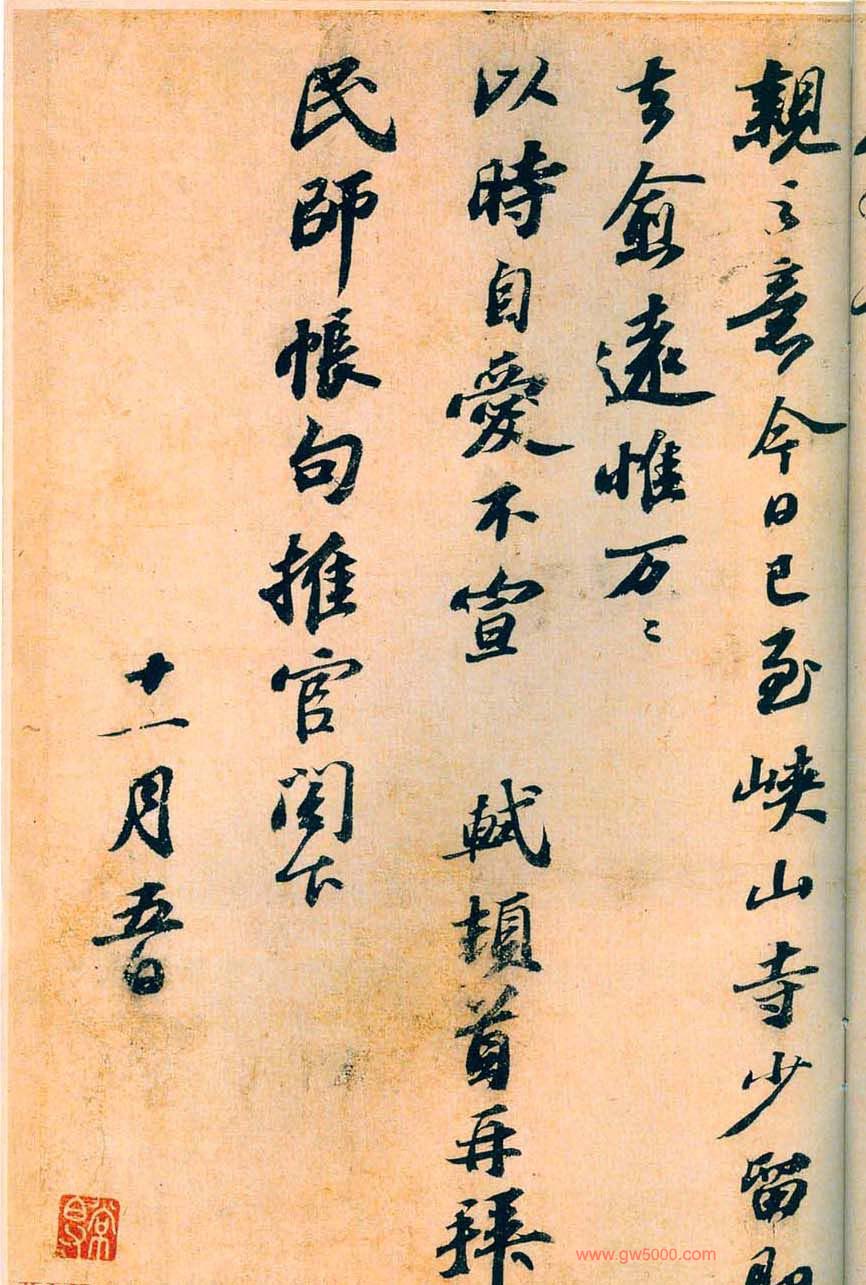 親之意今日已至峽山寺少留即
去愈遠惟万〻
以時自愛不宣 軾頓首再拜
民師帳句推官閣下
十一月五日
www.gw5000.com